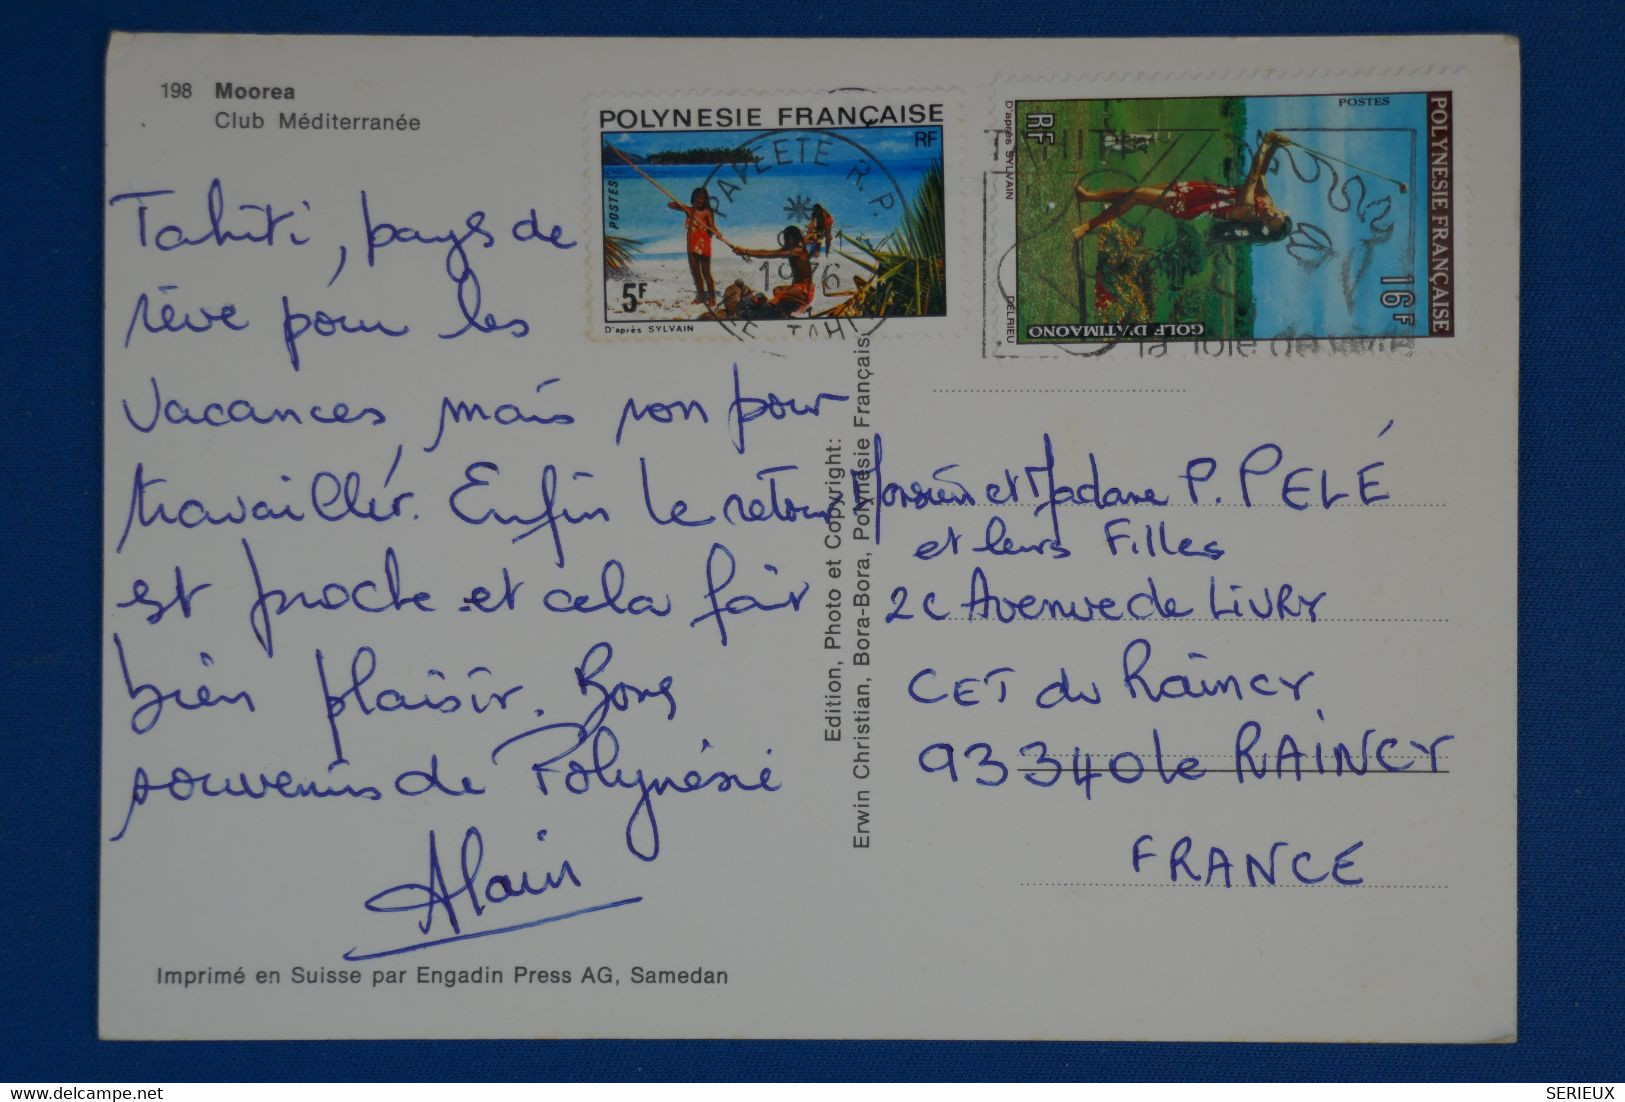 198 Moorea
Club Méditerranée
Tahiti, pays de
rêve pour les
vacances, mais non pour
travailler. Enfin le retour
est proche et cela fait
bien plaisir. Bons
souvenirs de Polynésie
Alain
Imprimé en Suisse par Engadin Press AG, Samedan
Edition, Photo et Copyright:
Erwin Christian, Bora-Bora, Polynésie Français.
POLYNESIE FRANÇAISE
RF
POSTES
5F
D'après SYLVAIN
PAPEETE R.P.
1976
POLYNESIE FRANÇAISE
16F
POSTES
RF
GOLF D'ATIMAONO
D'après SYLVAIN
DELRIEU
TAHITI
la joie de vivre
Monsieur et Madame P. PELÉ
et leurs Filles
2C Avenue de LIVRY
CET du Raincy
93340 le RAINCY
FRANCE
SERIEUX